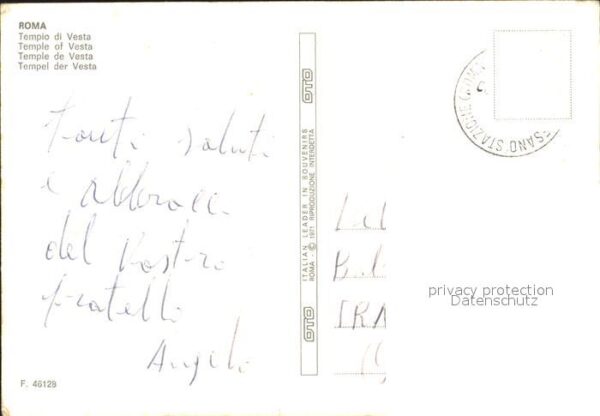 ROMA
Tempio di Vesta
Temple of Vesta
Temple de Vesta
Tempel der Vesta
Tanti saluti
e abbracci
dal vostri
fratelli
Angelo
OTO
ITALIAN LEADER IN SOUVENIRS
ROMA - © 1971 RIPRODUZIONE INTERDETTA
OTO
ESANO STAZIONE
privacy protection
Datenschutz
F. 46128